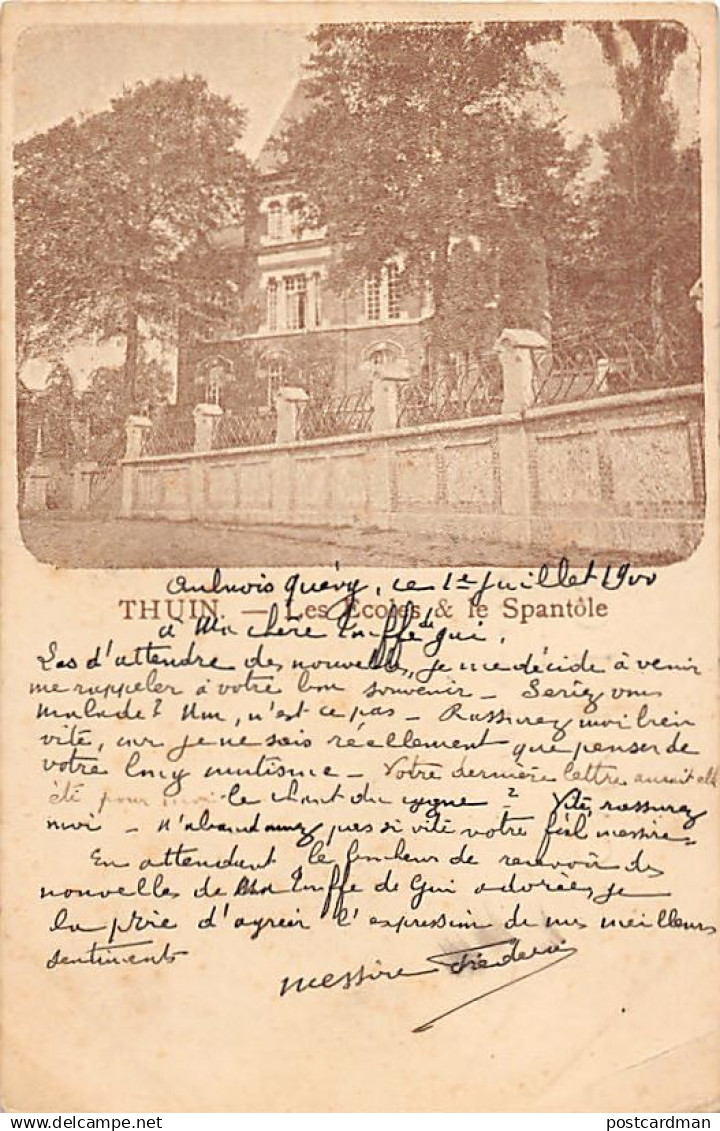 Aulnois Quévy, ce 1er Juillet 1900
THUIN. — Les Ecoles & le Spantôle
à Ma chère Touffe de gui,
Las d'attendre des nouvelles, je me décide à venir
me rappeler à votre bon souvenir — Seriez vous
malade? Non, n'est ce pas — Rassurez moi bien
vite, car je ne sais réellement que penser de
votre long mutisme — Votre dernière lettre aurait elle
été pour moi le chant du cygne? Vite, rassurez
moi — N'abandonnez pas si vite votre fidèl messire
En attendant le bonheur de recevoir des
nouvelles de Touffe de Gui adorée, je
la prie d'agréer l'expression de mes meilleurs
sentiments
messire Frédéric
postcardman